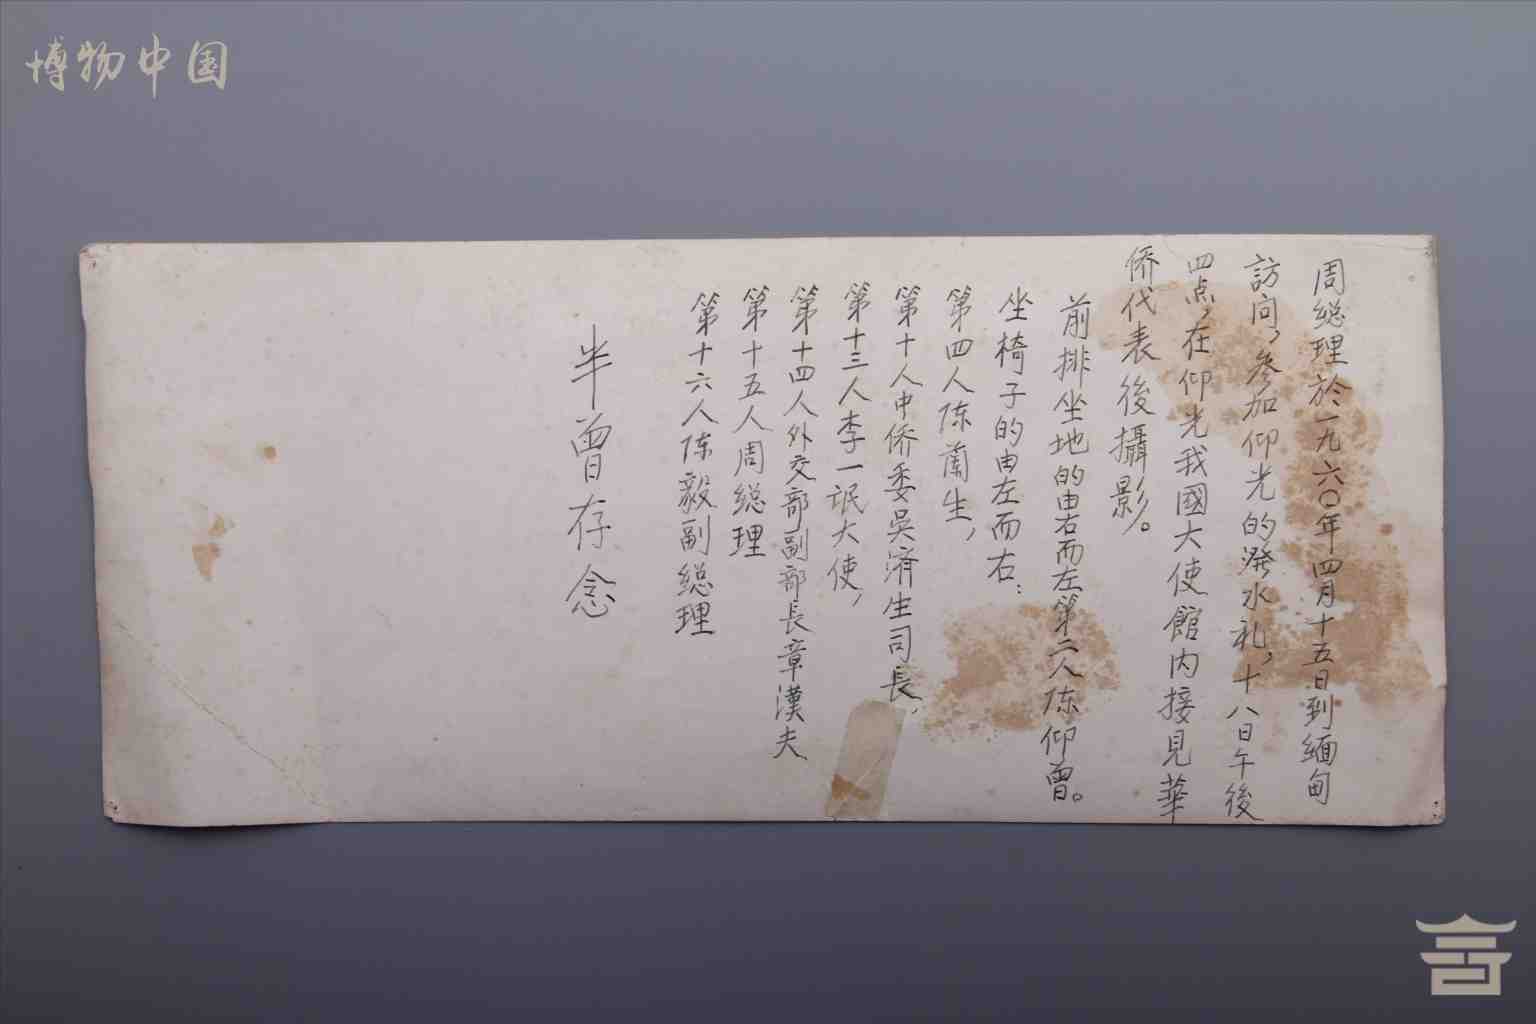 博物中国
周総理於一九六〇年四月十五日到缅甸
訪问，参加仰光的潑水礼，十八日午後
四点，在仰光我國大使館内接見華
侨代表後攝影。
前排坐地的由右而左第二人陈仰曾。
坐椅子的由左而右：
第四人陈蘭生，
第十人中侨委吳濟生司長，
第十三人李一氓大使，
第十四人外交部副部長章漢夫
第十五人周総理
第十六人陈毅副総理
半曾存念